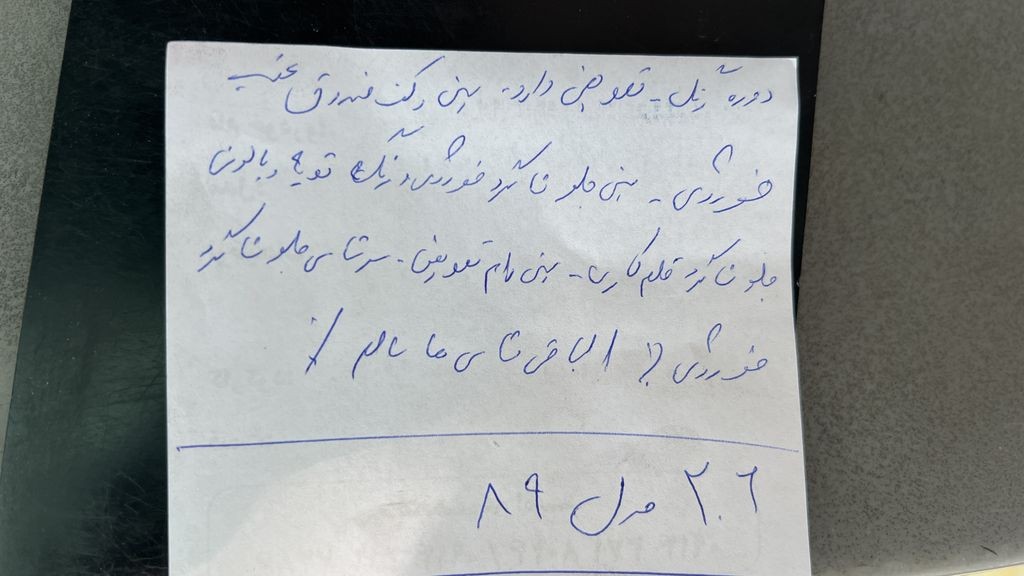 دوره رنگ - تعویض دارد. سینی کف صندوق عقب
خوردگی - سینی جلو شاگرد خوردگی و رنگ تویی و بالون
جلو شاگرد قلم کاری - سینی تعویض - سرشاسی جلو شاگرد
خوردگی الباقی شاسی ها سالم
۲۰۶ مدل ۸۹